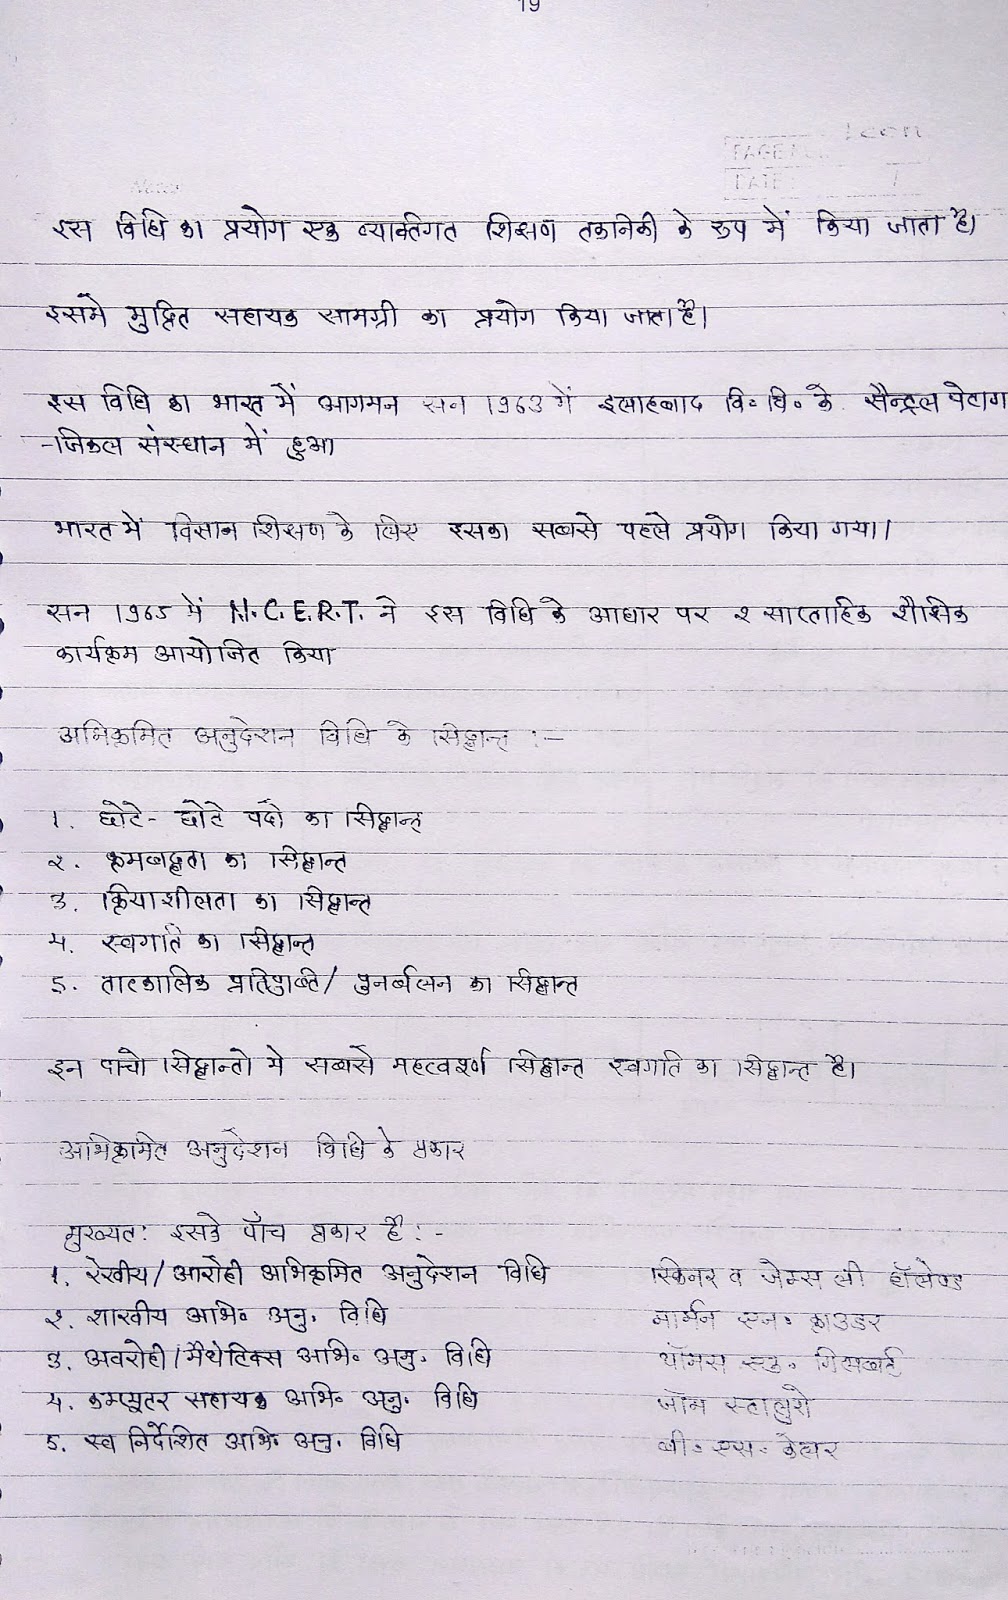 19
इस विधि का प्रयोग एक व्यक्तिगत शिक्षण तकनिकी के रूप में किया जाता है।
इसमे मुद्रित सहायक सामग्री का प्रयोग किया जाता है।
इस विधि का भारत में आगमन सन 1963 में इलाहबाद वि॰ वि॰ के सैन्ट्रल पेडाग
-जिकल संस्थान में हुआ
भारत में विज्ञान शिक्षण के लिए इसका सबसे पहले प्रयोग किया गया।
सन 1965 में N.C.E.R.T. ने इस विधि के आधार पर २ साप्ताहिक शैक्षिक
कार्यक्रम आयोजित किया
अभिक्रमित अनुदेशन विधि के सिद्धान्त :-
1. छोटे- छोटे पदो का सिद्धान्त
२. क्रमबद्धता का सिद्धान्त
3. क्रियाशीलता का सिद्धान्त
4. स्वगति का सिद्धान्त
5. तात्कालिक प्रतिपुष्टि/ पुनर्बलन का सिद्धान्त
इन पांचो सिद्धान्तो मे सबसे महत्वपूर्ण सिद्धान्त स्वगति का सिद्धान्त है।
अभिक्रमित अनुदेशन विधि के प्रकार
मुख्यत: इसके पाँच प्रकार हैं :-
1. रेखीय/आरोही अभिक्रमित अनुदेशन विधि स्किनर व जेम्स ली हॉलैण्ड
२. शाखीय अभि॰ अनु. विधि नार्मन एन॰ क्राउडर
3. अवरोही/मैथेटिक्स अभि॰ अनु. विधि थॉमस एफ॰ गिलबर्ट
4. कम्प्यूटर सहायक अभि॰ अनु. विधि जॉन स्टालुरो
5. स्व निर्देशित अभि॰ अनु. विधि वी॰ एस॰ केलर